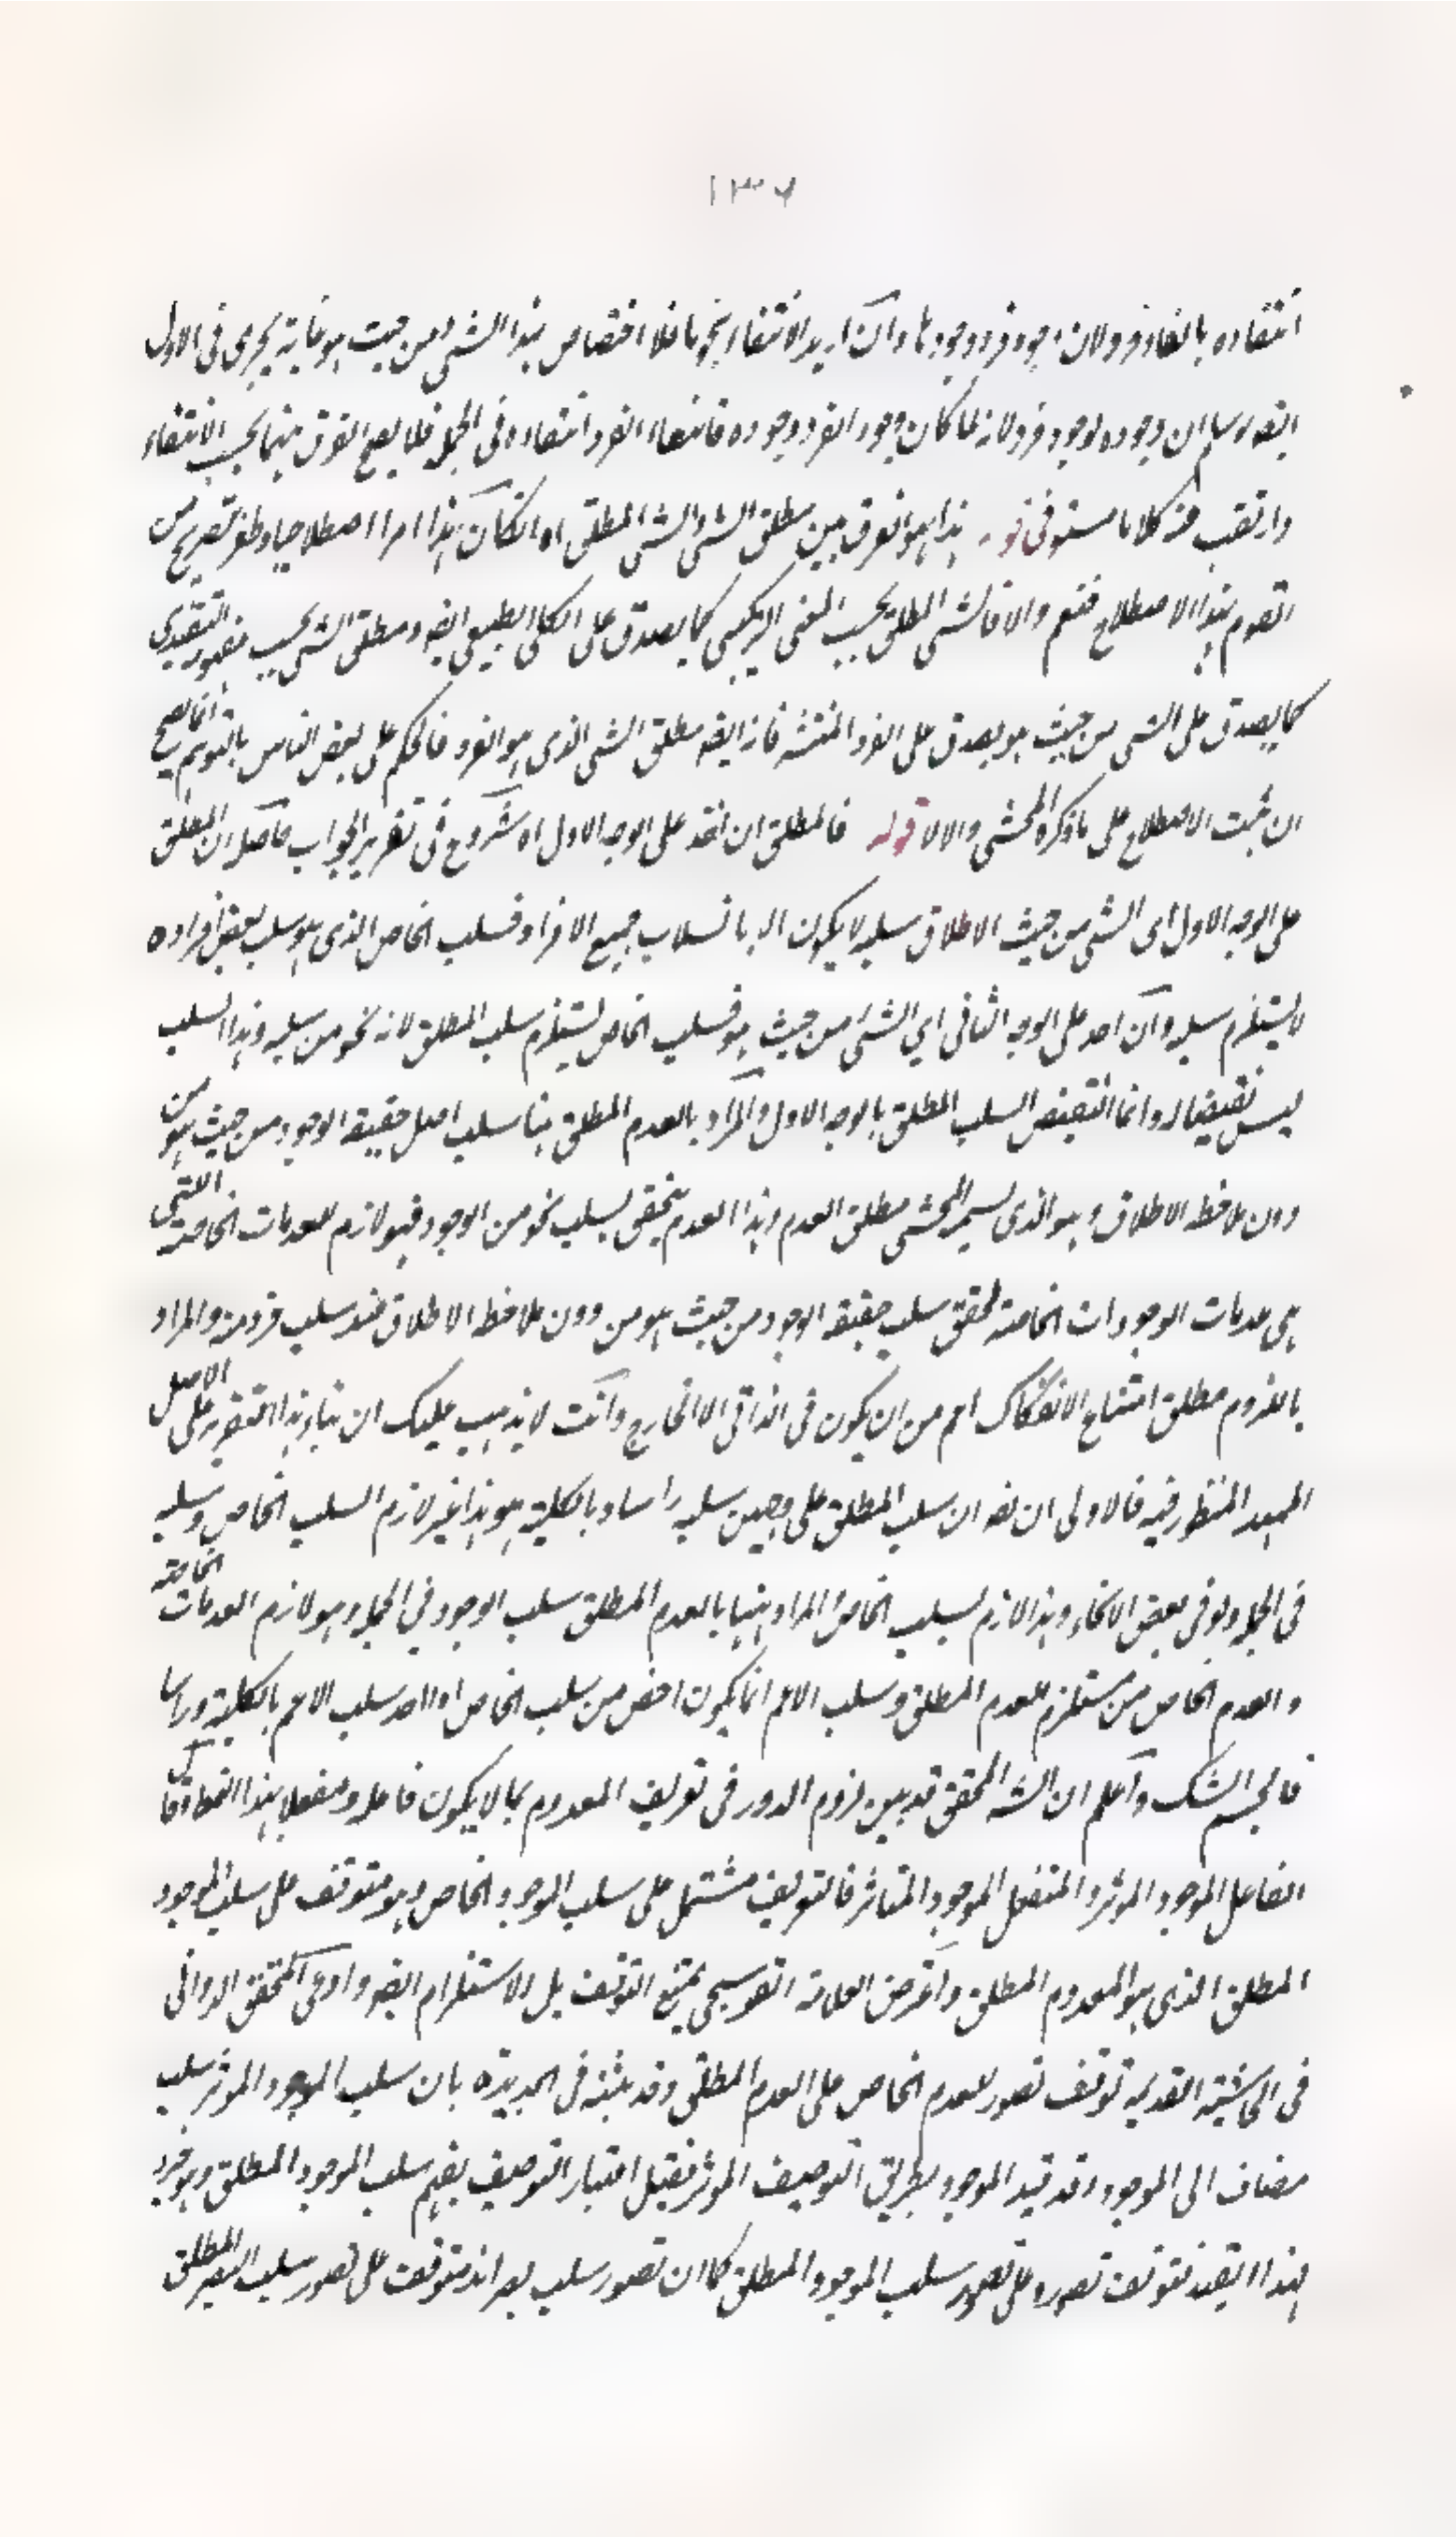 ١٣٦
انتفاءه بانتفاء فرد ولان وجود فرد وجود ما وان اريد الانتفاء بنحو ما فلا اختصاص بهذا الشى من حيث هو فانه يجرى فى الاول
ايضا وسلم ان وجوده بوجود فرد لانه لما كان وجود الفرد وجوده فانتفاء الفرد انتفاءه فى الجملة فلا يصح الفرق بينهما بحسب الانتفاء
وارتقب منه كلاما مستوفى قوله هذا هو الفرق بين مطلق الشى والشى المطلق اه ان كان هذا امرا اصطلاحيا وظفر بتصريح من
القوم بهذا الاصطلاح فنعم والا فالشى المطلق بحسب المعنى التركيبى كما يصدق على الكلى الطبيعى ايضا ومطلق الشى بحسب مفهومه التقييدى
كما يصدق على الشى من حيث هو يصدق على الفرد المنتشر فانه ايضا مطلق الشى الذى هو الفرد فالحكم على بعض الناس بالتوهم انما يصح
ان ثبت الاصطلاح على ما ذكره المحشى والا لا قوله فالمطلق ان اخذ على الوجه الاول اه شروع فى تقرير الجواب حاصله ان المطلق
على الوجه الاول اى الشى من حيث الاطلاق سلبه لا يكون الا بانسلاب جميع الافراد فسلب الخاص الذى هو سلب بعض افراده
لا يستلزم سلبه وان اخذ على الوجه الثانى اي الشى من حيث هو فسلب الخاص يستلزم سلب المطلق لانه نحو من سلبه وهذا السلب
ليس نقيضا له وانما النقيض السلب المطلق بالوجه الاول والمراد بالعدم المطلق هنا سلب اصل حقيقة الوجود من حيث هو من
دون ملاحظة الاطلاق وهو الذى يسميه المحشى مطلق العدم وهذا العدم يتحقق بسلب نحو من الوجود فهو لازم للعدمات الخاصة التى
هى عدمات الوجودات الخاصة لتحقق سلب حقيقة الوجود من حيث هو من دون ملاحظة الاطلاق عند سلب فرد منه والمراد
باللزوم مطلق امتناع الانفكاك اعم من ان يكون فى الذاتى او الخارج وانت لا يذهب عليك ان بناء هذا التقرير على الاصل
الممهد المنظور فيه فالاولى ان يقه ان سلب المطلق على وجهين سلبه راسا وبالكلية وهذا غير لازم السلب الخاص وسلبه
فى الجملة ولو فى بعض الانحاء وهذا لازم لسلب الخاص والمراد ههنا بالعدم المطلق سلب الوجود في الجملة وهو لازم العدمات الخاصة
والعدم الخاص من مستلزم للعدم المطلق وسلب الاعم انما يكون اخص من سلب الخاص اذا اخذ سلب الاعم بالكلية وراسا
فانحسم الشك واعلم ان الشه المحقق قد بين لزوم الدور فى تعريف المعدوم بما لا يكون فاعلا ومنفعلا بهذا
الفاعل الموجود الموثر والمنفعل الموجود المتاثر فالتعريف مشتمل على سلب الموجود الخاص وهو متوقف على سلب الموجود
المطلق الذى هو المعدوم المطلق واعترض العلامة القوسجى بمنع التوقف بل الاستلزام ايضا وادعى المحقق الدوانى
فى الحاشية القديمة توقف تصور العدم الخاص على العدم المطلق وقد بينه فى الجديدة بان سلب الموجود الموثر سلب
مضاف الى الموجود وقد قيد الموجود بطريق التوصيف الموثر فقبل اعتبار التوصيف يفهم سلب الموجود المطلق وهو جزء
لهذا المقيد فتوقف تصوره على تصور سلب الموجود المطلق كما ان تصور سلب بصر انه متوقف على تصور سلب البصر المطلق